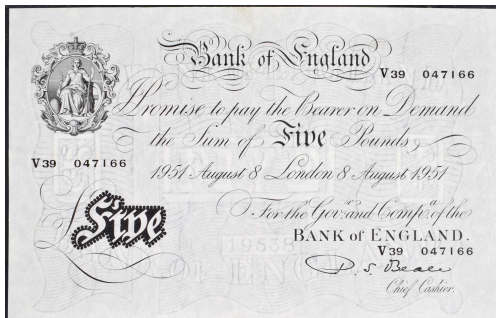 Bank of England
V39 047166
I Promise to pay the Bearer on Demand
the Sum of Five Pounds
V39 047166
1951 August 8 London 8 August 1951
For the Gov.r and Comp.a of the
£Five
BANK OF ENGLAND.
V39 047166
P. S. Beale
Chief Cashier.